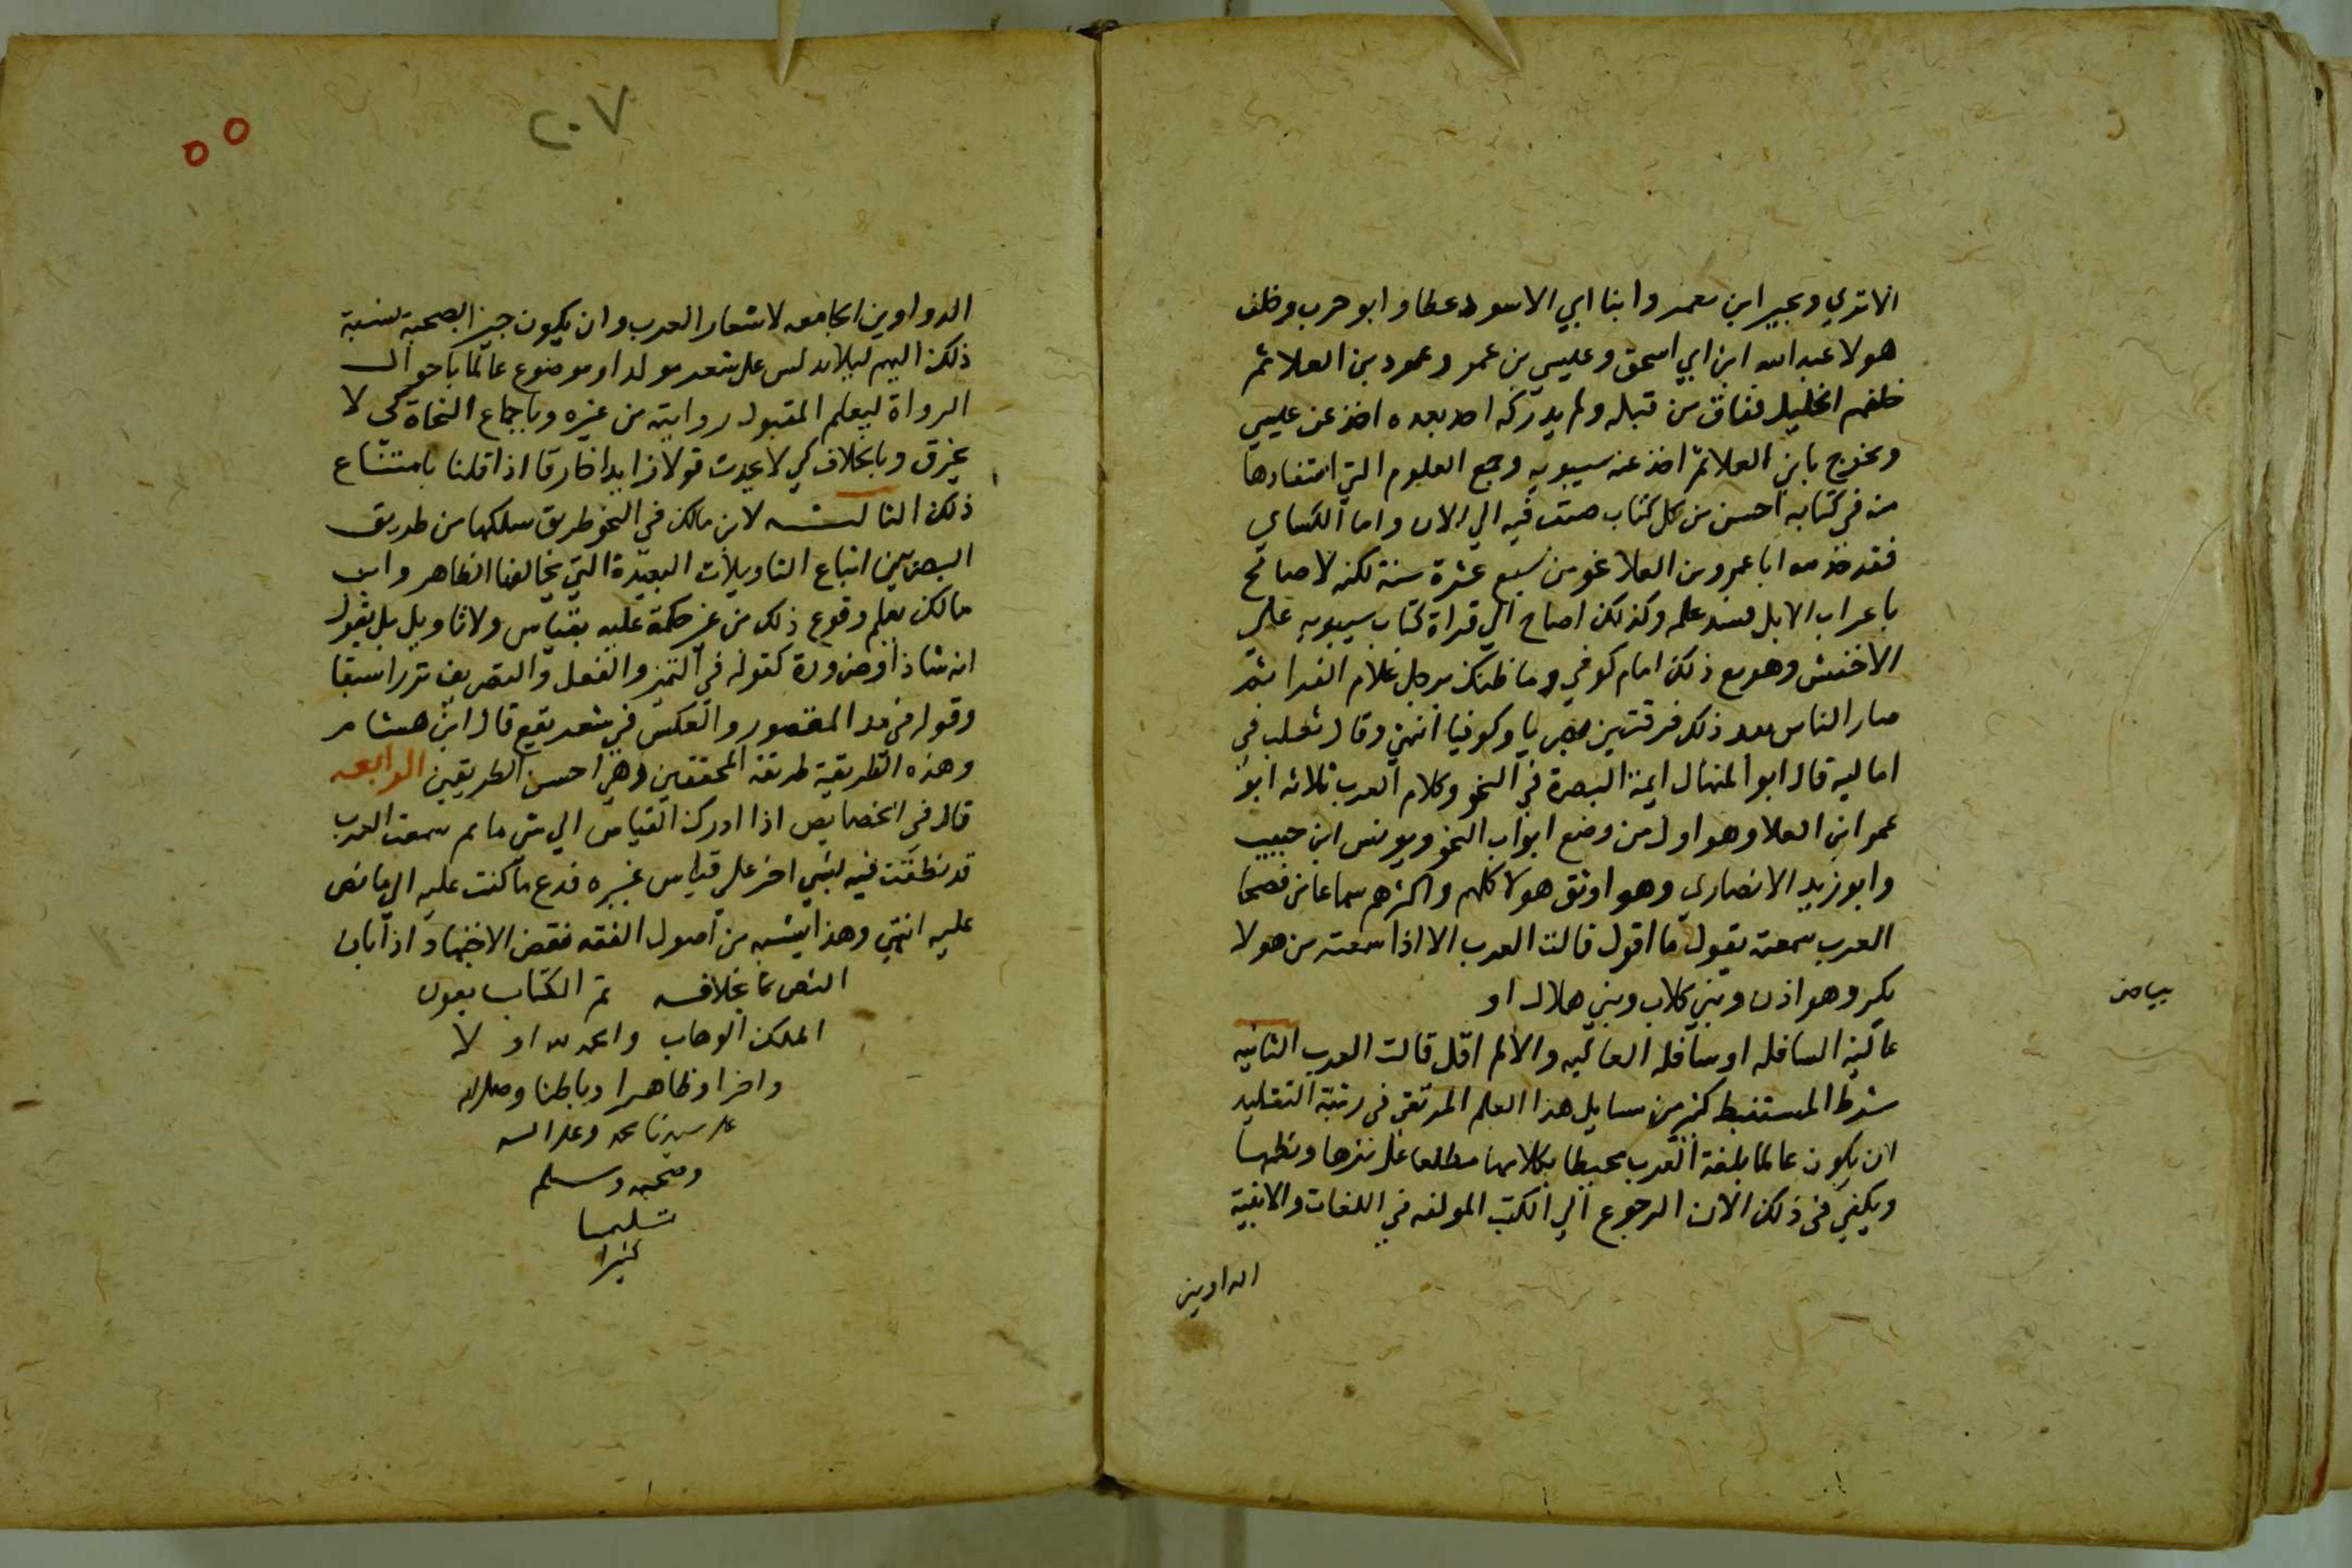 الاتدي ويحيى ابن معمر وابنا ابي الاسود عطا وابو حرب وخلف
هولا عبد الله ابن ابي اسحق وعليسي بن عمر وعمود بن العلا ثم
خلفهم الخليل ففاق من قبله ولم يدركه احد بعده اخذ عن عليسي
وتخرج بابن العلا ثم اخذ عنه سيبويه وجمع العلوم التي استفادها
منه في كتابه احسن من كل كتاب صنف فيه الي الان واما الكساي
فقد خدم ابا عمرو بن العلا نحو من سبع عشرة سنة لكنه لا
باعراب الابل فسد علمه وكذلك احتاج الي قراة كتاب سيبويه علي
الاخفش وهو مع ذلك امام كوفي وما ظنك برجل غلام الفرا ثم
صار الناس بعد ذلك فرقتين بصريا وكوفيا انتهي وقال ثعلب في
اماليه قال ابو المنهال ايمة البصرة في النحو وكلام العرب ثلاثه ابو
عمر ابن العلا وهو اول من وضع ابواب النحو ويونس ابن حبيب
وابو زيد الانصاري وهو اوثق هولا كلهم واكثرهم سماعا من فصحا
العرب سمعته يقول ما اقول قالت العرب الا اذا سمعته من هولا
بكر وهوازن وبني كلاب وبني هلال او
بياض
عالية السافله او سافله العاليه والا لم اقل قالت العرب الثانيه
شرط المستنبط كثر من مسايل هذا العلم المرتقي في رتبة التقليد
ان يكون عالما بلغة العرب محيطا بكلامها مطلعا علي نثرها ونظمها
ويكفي في ذلك الان الرجوع الي الكتب المولفه في اللغات والابنية
الداوين
٢٠٧
الدواوين الجامعه لاشعار العرب وان يكون جيزا بصحبة نسبة
ذلك اليهم ليلا يدلس علي شعر مولد او موضوع عالما باحوال
الرواة ليعلم المقبول روايته من غيره وباجماع النحاة كي لا
يخرق وبالخلاف كي لا يحدث قولا زايدا خارقا اذا قلنا بامتناع
ذلك الثالثه لابن مالك في النحو طريق سلكها من طريق
البصريين اتباع التاويلات البعيدة التي يخالفها الظاهر وابن
مالك يعلم وقوع ذلك من غير حكمة عليه بقياس ولا تاويل بل يقول
انه شاذ او ضرورة كقوله في التميز والفعل والتصريف نزرا سبقا
وقوله في مد المقصور والعكس في شعر يقع قال ابن هشام
وهذه الطريقة طريقة المحققين وهي احسن الطريقين الرابعه
قال في الخصايص اذا ادرك القياس الي شي ما ثم سمعت العرب
قد نطقت فيه بشي اخر علي قياس غيره فدع ما كنت عليه الي ما نص
عليه انتهي وهذا يشبه من اصول الفقه نقض الاجتهاد اذا بان
النص بخلافه تم الكتاب بعون
الملك الوهاب والحمد لله او لا
واخرا وظاهرا وباطنا وصلي الله
علي سيدنا محمد وعلي اله
وصحبه وسلم
تسليما
كثيرا